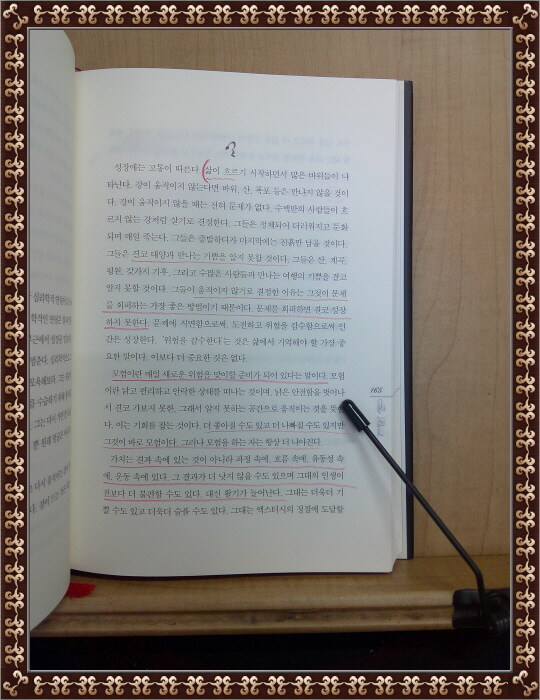 성장에는 고통이 따른다. 삶이 흐르기 시작하면서 많은 바위들이 나
타난다. 강이 움직이지 않는다면 바위, 산, 폭포 등은 만나지 않을 것이
다. 강이 움직이지 않을 때는 전혀 문제가 없다. 수백만의 사람들이 흐
르지 않는 강처럼 살기로 결정한다. 그들은 정체되어 더러워지고 둔화
되며 매일 죽는다. 그들은 증발하다가 마지막에는 진흙만 남을 것이다.
그들은 결코 대양과 만나는 기쁨을 알지 못할 것이다. 그들은 산, 계곡,
평원, 갖가지 기후, 그리고 수많은 사람들과 만나는 여행의 기쁨을 결코
알지 못할 것이다. 그들이 움직이지 않기로 결정한 이유는 그것이 문제
를 회피하는 가장 좋은 방법이기 때문이다. 문제를 회피하면 결코 성장
하지 못한다. 문제에 직면함으로써, 도전하고 위험을 감수함으로써 인
간은 성장한다. '위험을 감수한다'는 것은 삶에서 기억해야 할 가장 중
요한 말이다. 이보다 더 중요한 것은 없다.
모험이란 매일 새로운 위험을 맞이할 준비가 되어 있다는 말이다. 모험
이란 낡고 편리하고 안락한 상태를 떠나는 것이며, 낡은 안전함을 벗어나
서 결코 가보지 못한, 그래서 알지 못하는 공간으로 움직이는 것을 뜻한
다. 이는 기회를 잡는 것이다. 더 좋아질 수도 있고 더 나빠질 수도 있지만
그것이 바로 모험이다. 그러나 모험을 하는 자는 항상 더 나아진다.
가치는 결과 속에 있는 것이 아니라 과정 속에, 흐름 속에, 유동성 속
에, 운동 속에 있다. 그 결과가 더 낫지 않을 수도 있으며 그대의 인생이
전보다 더 불편할 수도 있다. 대신 활기가 늘어난다. 그대는 더욱더 기
쁠 수도 있고 더욱더 슬플 수도 있다. 그대는 엑스터시의 정점에 도달할
165